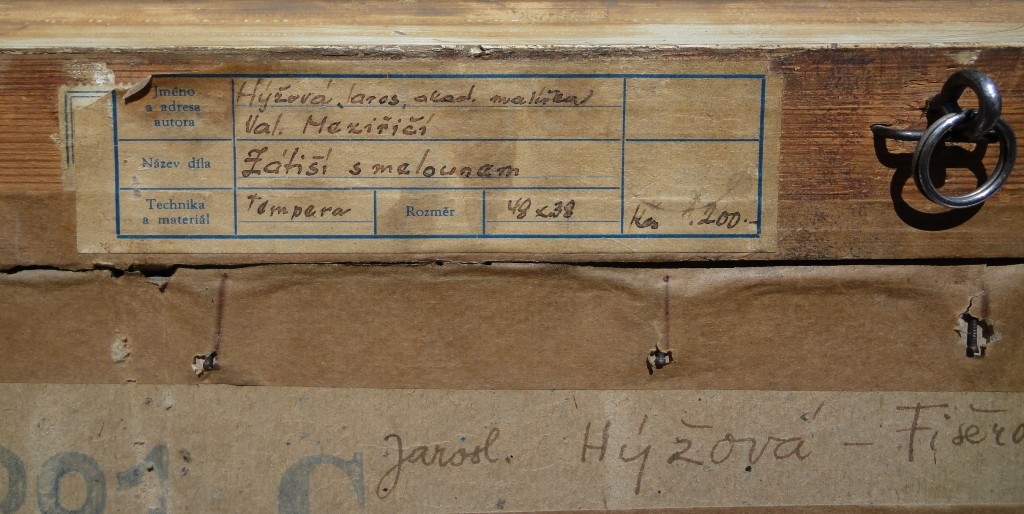 Jméno
a adresa
autora
Hýžová Jaros, akad. malířka
Val. Meziříčí
Název díla
Zátiší s melounem
Technika
a materiál
Tempera
Rozměr
48 x 38
Kčs 1.200.-
001 C
Jarosl. Hýžová – Fišero